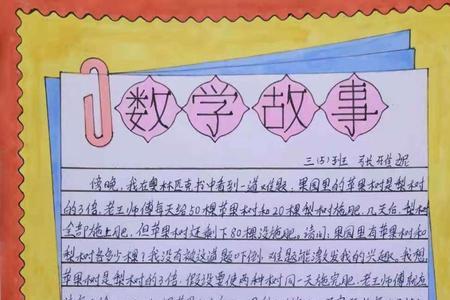 数学故事
三(5)班 张雅妮
傍晚，我在奥林匹克书中看到一道难题：果园里的苹果树是梨树
的3倍，老王师傅每天给50棵苹果树和20棵梨树施肥，几天后，梨树
全部施上肥，但苹果树还剩下80棵没施肥。请问：果园里有苹果树和
梨树各多少棵？我没有被这道题吓倒，难题能激发我的兴趣。我想，
苹果树是梨树的3倍，假设要使两种树同一天施完肥，老王师傅就应